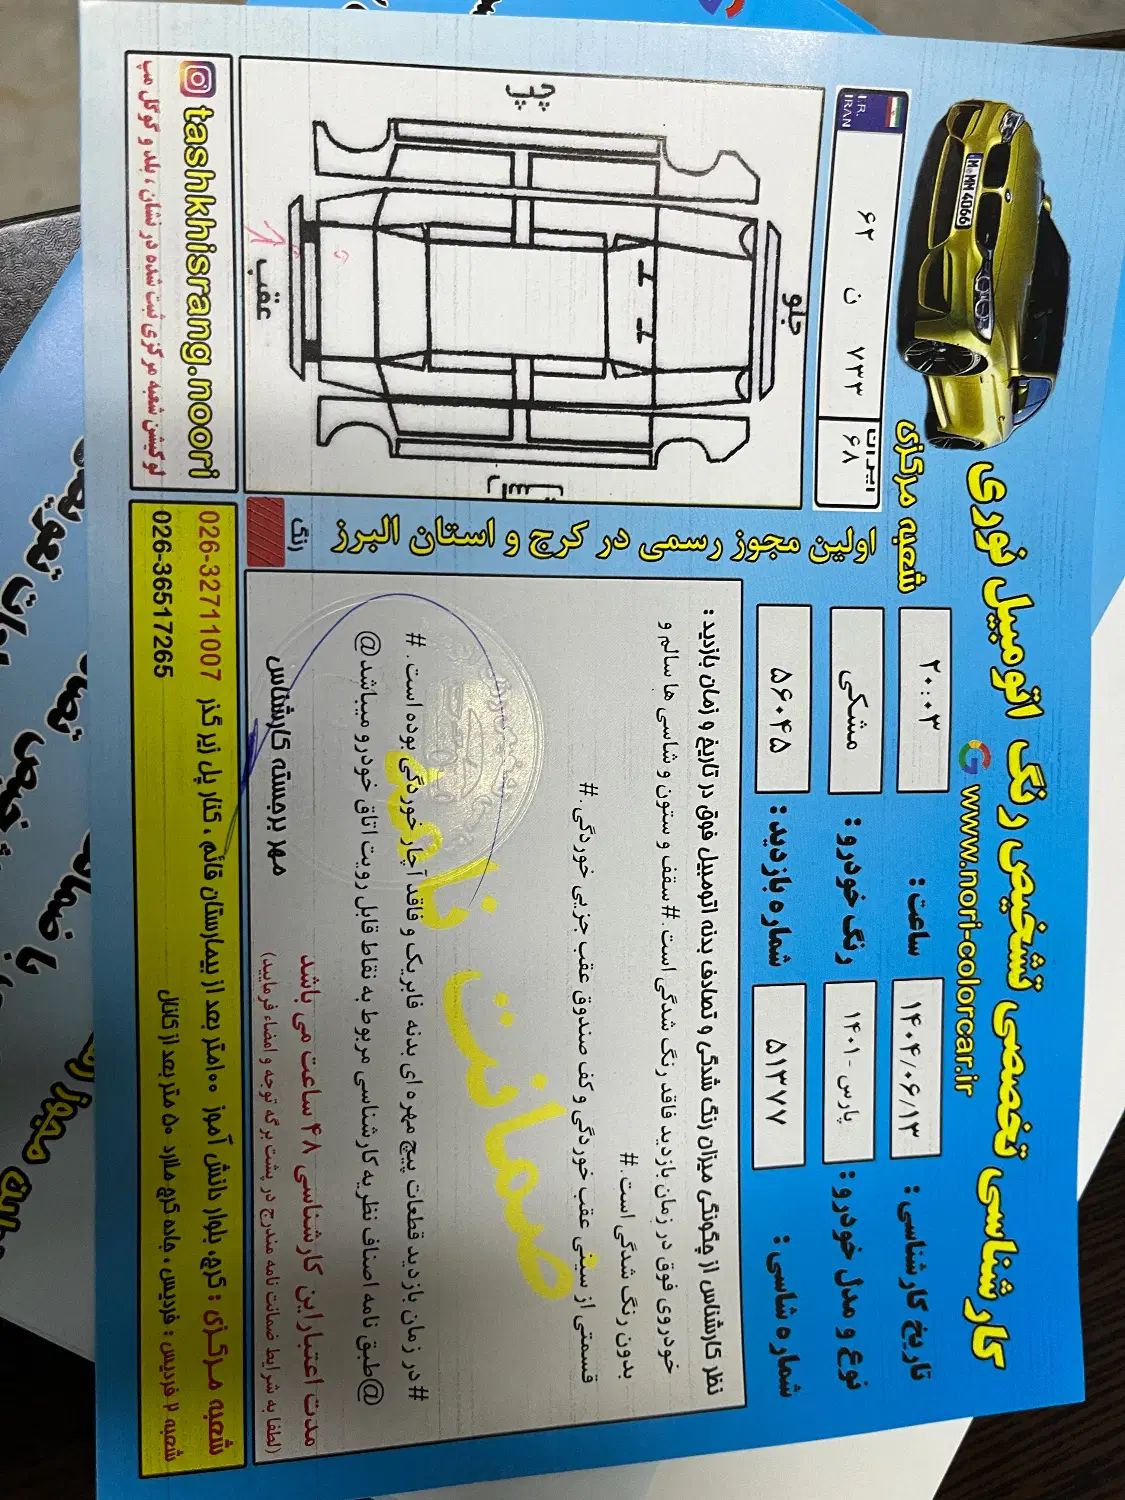 کارشناسی تخصصی تشخیص رنگ اتومبیل نوری
www.nori-colorcar.ir
شعبه مرکزی
تاریخ کارشناسی : ۱۴۰۴/۰۶/۱۳
ساعت : ۲۰:۰۳
نوع و مدل خودرو : پارس - ۱۴۰۱
رنگ خودرو : مشکی
شماره شاسی : ۵۱۳۷۷
شماره بازدید : ۵۶۰۴۵
I.R. IRAN
۶۲ ن ۷۳۳
ایران ۶۸
M MM 4066
نظر کارشناس از چگونگی میزان رنگ شدگی و تصادف بدنه اتومبیل فوق در تاریخ و زمان بازدید :
خودروی فوق در زمان بازدید فاقد رنگ شدگی است.# سقف و ستون و شاسی ها سالم و
بدون رنگ شدگی است.#
قسمتی از سینی عقب خوردگی و کف صندوق عقب جزیی خوردگی.#
ضمانت نامه
#در زمان بازدید قطعات پیچ مهره ای بدنه فابریک و فاقد آچار خوردگی بوده است. #
@طبق نامه اصناف نظریه کارشناسی مربوط به نقاط قابل رویت اتاق خودرو میباشد@
مهر برجسته کارشناس
مدت اعتبار این کارشناسی ۴۸ ساعت می باشد
(لطفا به شرایط ضمانت نامه مندرج در پشت برگه توجه و امضاء فرمایید)
اولین مجوز رسمی در کرج و استان البرز
رنگ
چپ
جلو
عقب
راست
tashkhisrang.noori
لوکیشن شعبه مرکزی ثبت شده در نشان ، بلد و گوگل مپ
شعبه مرکزی : کرج، بلوار دانش آموز ۱۰۰متر بعد از بیمارستان قائم ، کنار پل زیر گذر 026-32711007
شعبه ۲ فردیس : فردیس ، جاده کرج ملارد ۵۰ متر بعد از کانال 026-36517265